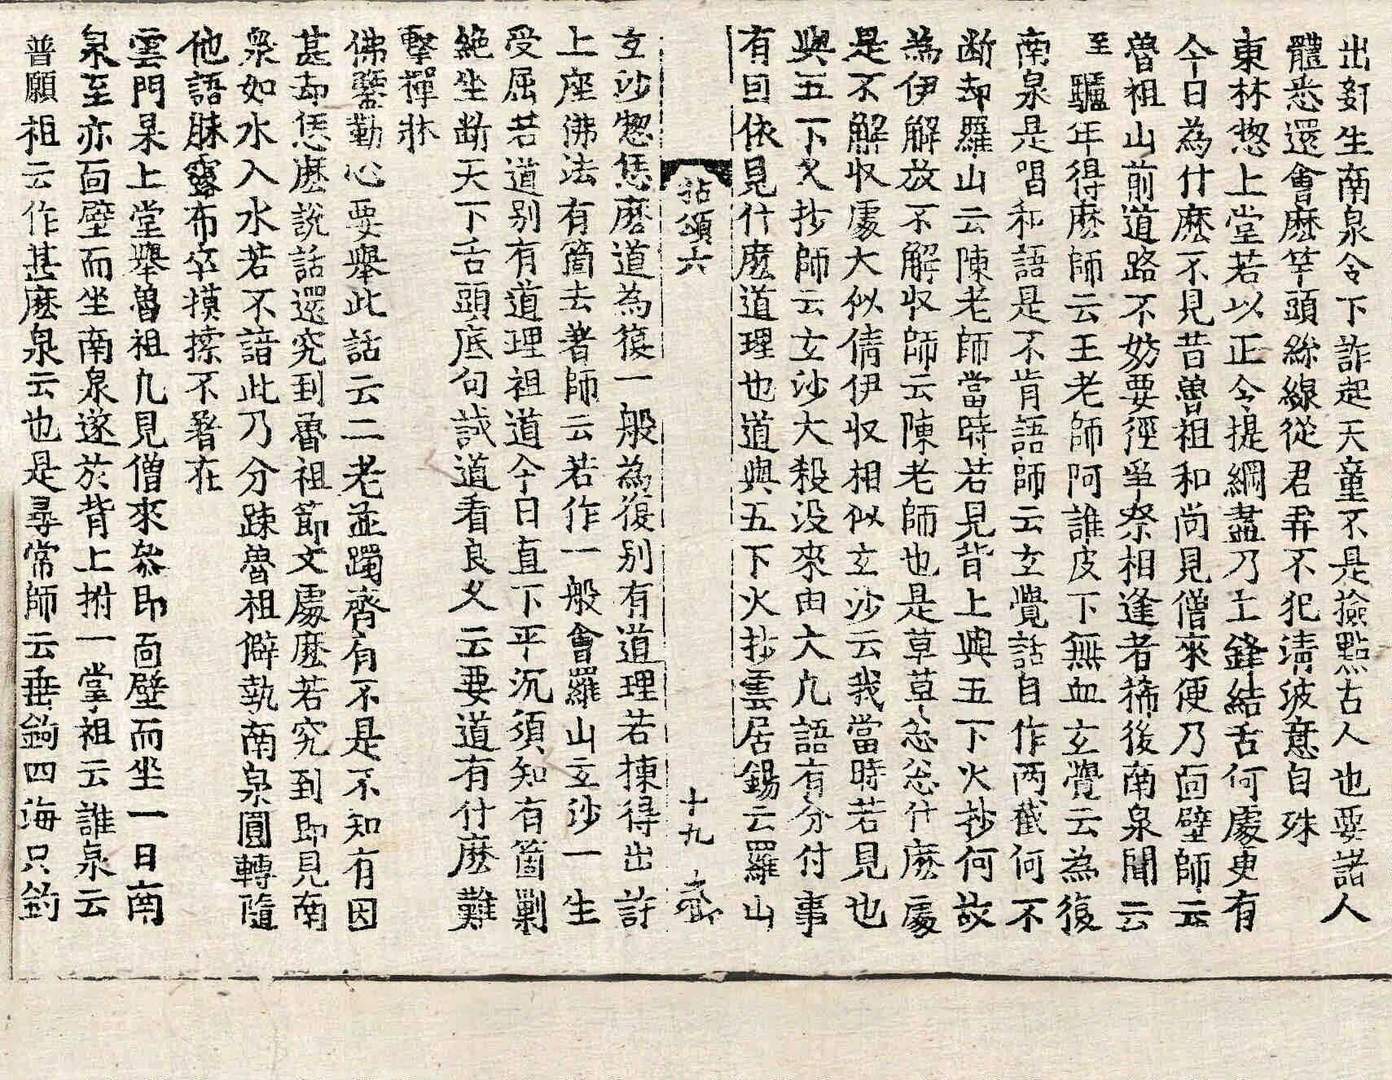 出姧生南泉令下詐起天童不是撿點古人也要諸人
體悉還會麽竿頭絲線從君弄不犯淸波意自殊
東林惣上堂若以正令提綱盡乃亡鋒結舌何處更有
今日為什麽不見昔魯祖和尚見僧來便乃面壁師云
魯祖山前道路不妨要徑爭奈相逢者稀後南泉聞云
至驢年得麽師云王老師阿誰皮下無血玄覺云為復
南泉是唱和語是不肯語師云玄覺話自作兩截何不
断却羅山云陳老師當時若見背上與五下火抄何故
為伊解放不解収師云陳老師也是草草怱怱什麽處
是不解収處大似倩伊収相似玄沙云我當時若見也
與五下火抄師云玄沙大殺没來由大凢語有分付事
有回依見什麽道理也道與五下火抄雲居錫云羅山
拈頌六 十九
玄沙惣恁麽道為復一般為復别有道理若揀得出許
上座佛法有箇去著師云若作一般會羅山玄沙一生
受屈若道别有道理祖道今日直下平沉須知有箇剿
絶坐断天下舌頭底句試道看良久云要道有什麽難
擊禪牀
佛鑒勤心要舉此話云二老並躅齊有不是不知有因
甚却恁麽說話還究到魯祖節文處麽若究到即見南
泉如水入水若不諳此乃分踈魯祖僻執南泉圓轉隨
他語脉露布卒摸𢱢不著在
雲門杲上堂舉魯祖凢見僧來叅即面壁而坐一日南
泉至亦面壁而坐南泉遂於背上拊一掌祖云誰泉云
普願祖云作甚麽泉云也是尋常師云垂鉤四海只釣